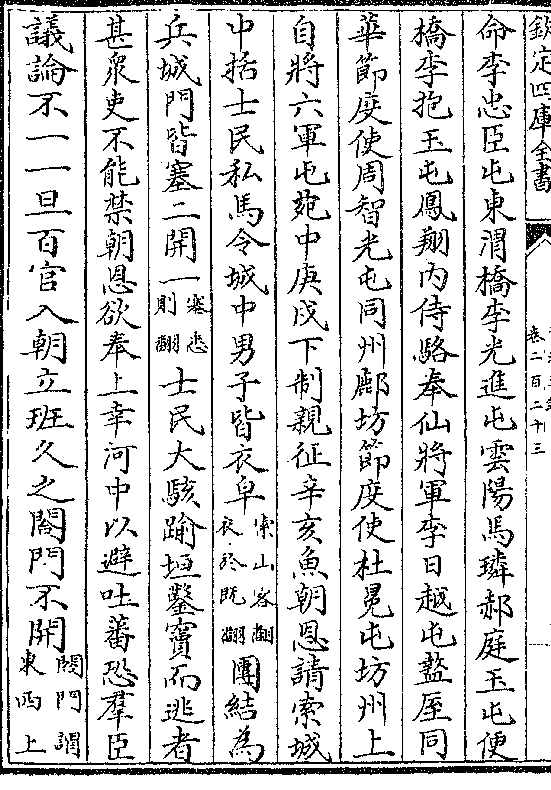 欽定四庫全書
卷二百二十三
命李忠臣屯東渭橋李光進屯雲陽馬璘郝庭玉屯便
橋李抱玉屯鳳翔内侍駱奉仙將軍李日越屯盩厔同
華節度使周智光屯同州鄜坊節度使杜冕屯坊州上
自將六軍屯苑中庚戌下制親征辛亥魚朝恩請索城
中括士民私馬令城中男子皆衣皁索山客翻衣於既翻團結為
兵城門皆塞二開一塞悉則翻士民大駭踰垣鑿竇而逃者
甚衆吏不能禁朝恩欲奉上幸河中以避吐蕃恐羣臣
議論不一一旦百官入朝立班久之閤門不開閤門謂東西上